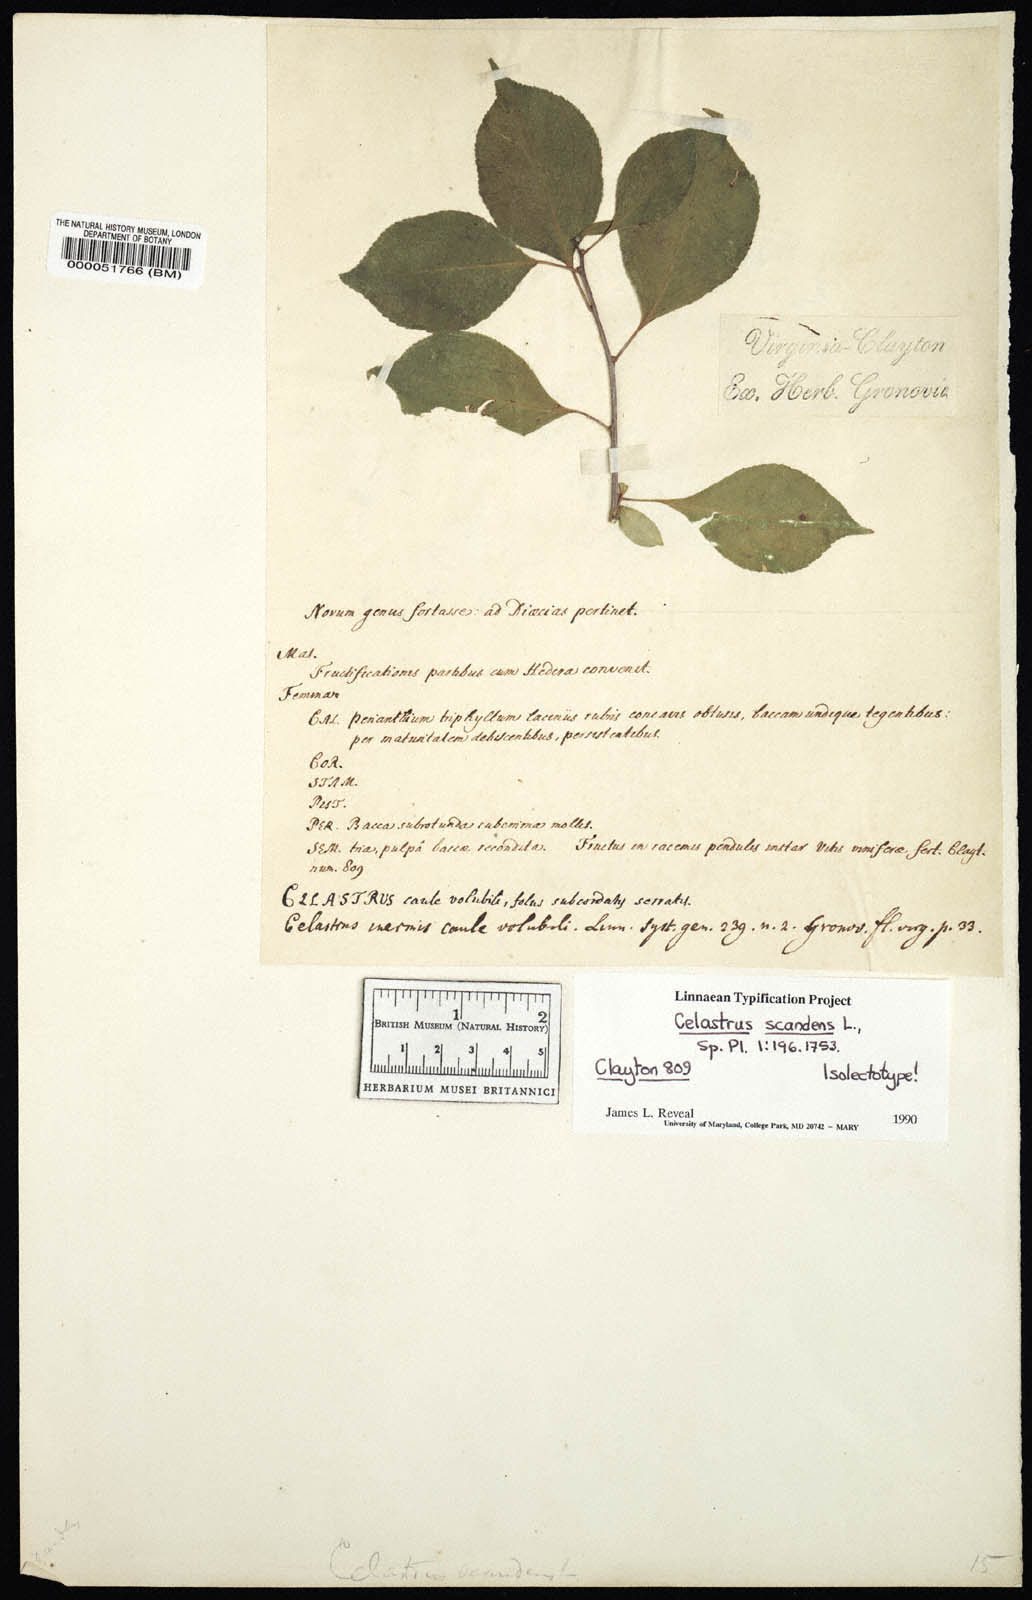 THE NATURAL HISTORY MUSEUM, LONDON
DEPARTMENT OF BOTANY
000051766 (BM)
Virginia-Clayton
Ex. Herb. Gronovii
Novum genus fortasse: ad Diœcias pertinet.
Mas.
Fructificationis partibus cum Hedera convenit.
Feminan
CAL. Perianthium triphyllum laciniis rubris concavis obtusis, baccam undique tegentibus:
per maturitatem dehiscentibus, persistentibus.
COR.
STAM.
PIST.
PER. Bacca subrotunda mollis.
SEM. tria, pulpâ baccæ secondita. Fructus in racemis pendulis instar Vitis viniferæ fert. Clayt.
num. 809
CELASTRUS caule volubili, foliis subcordatis serratis.
Celastrus inermis caule volubili. Linn. Syst. gen. 239. n. 2. Gronov. fl. virg. p. 33.
1 2
BRITISH MUSEUM (NATURAL HISTORY)
1 2 3 4 5
HERBARIUM MUSEI BRITANNICI
Linnaean Typification Project
Celastrus scandens L.,
Sp. Pl. 1:196. 1753.
Clayton 809 Isolectotype!
James L. Reveal 1990
University of Maryland, College Park, MD 20742 – MARY
Celastrus scandens L.
15